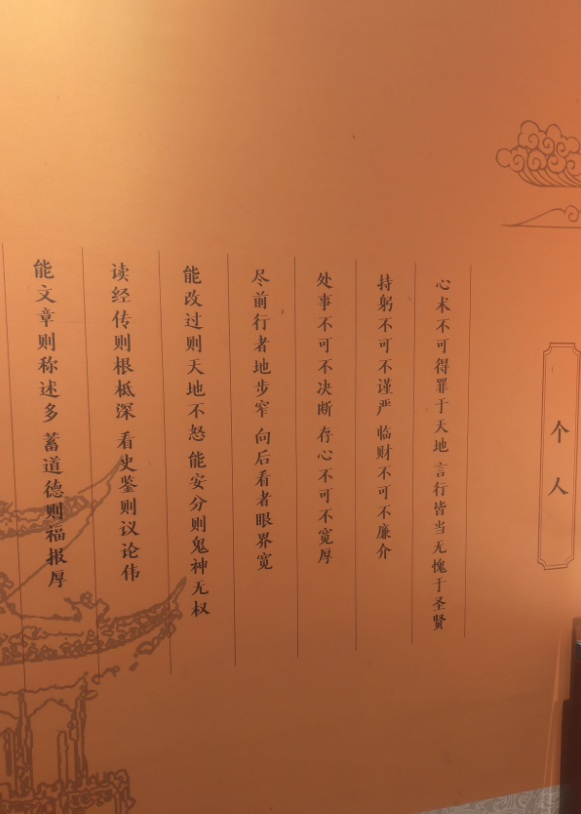 个人
心术不可得罪于天地 言行皆当无愧于圣贤
持躬不可不谨严 临财不可不廉介
处事不可不决断 存心不可不宽厚
尽前行者地步窄 向后看者眼界宽
能改过则天地不怒 能安分则鬼神无权
读经传则根柢深 看史鉴则议论伟
能文章则称述多 蓄道德则福报厚